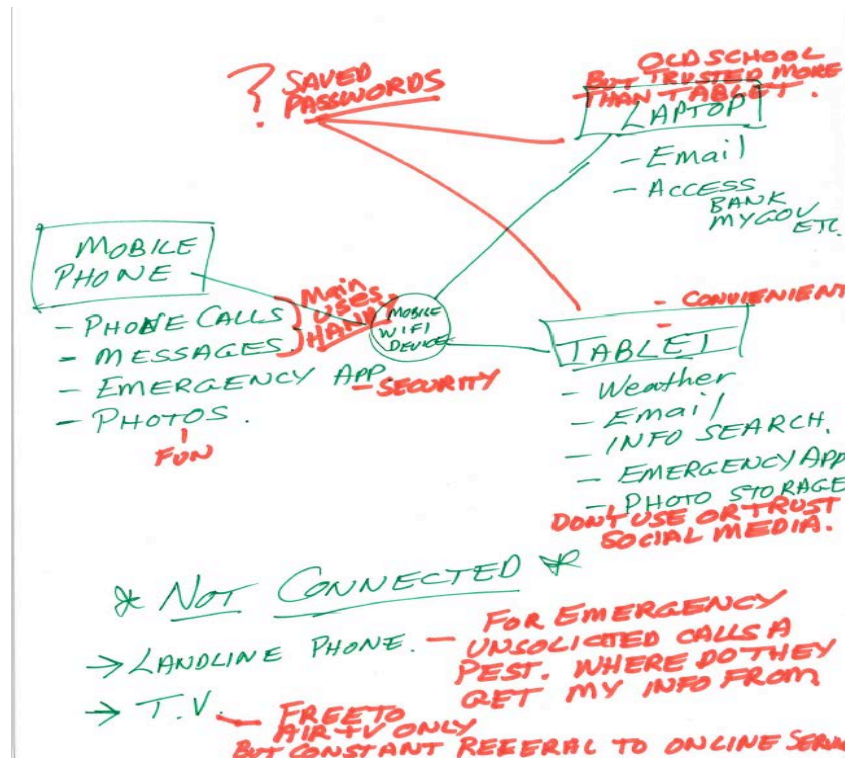 ? SAVED
PASSWORDS
OLD SCHOOL
BUT TRUSTED MORE
THAN TABLET.
LAPTOP
- Email
- ACCESS
BANK
MYGOV
ETC.
MOBILE
PHONE
- PHONE CALLS
- MESSAGES.
- EMERGENCY APP
- PHOTOS.
Main
USES
HANDY
- SECURITY
FUN
MOBILE
WIFI
DEVICE
- CONVIENIENT
-
TABLET
- Weather
- Email
- INFO SEARCH.
- EMERGENCY APP
- PHOTO STORAGE
DON'T USE OR TRUST
SOCIAL MEDIA.
* NOT CONNECTED *
→ LANDLINE PHONE. - FOR EMERGENCY
UNSOLICITED CALLS A
PEST. WHERE DO THEY
GET MY INFO FROM
→ T.V. - FREE TO
AIR TV ONLY
BUT CONSTANT REFERAL TO ONLINE